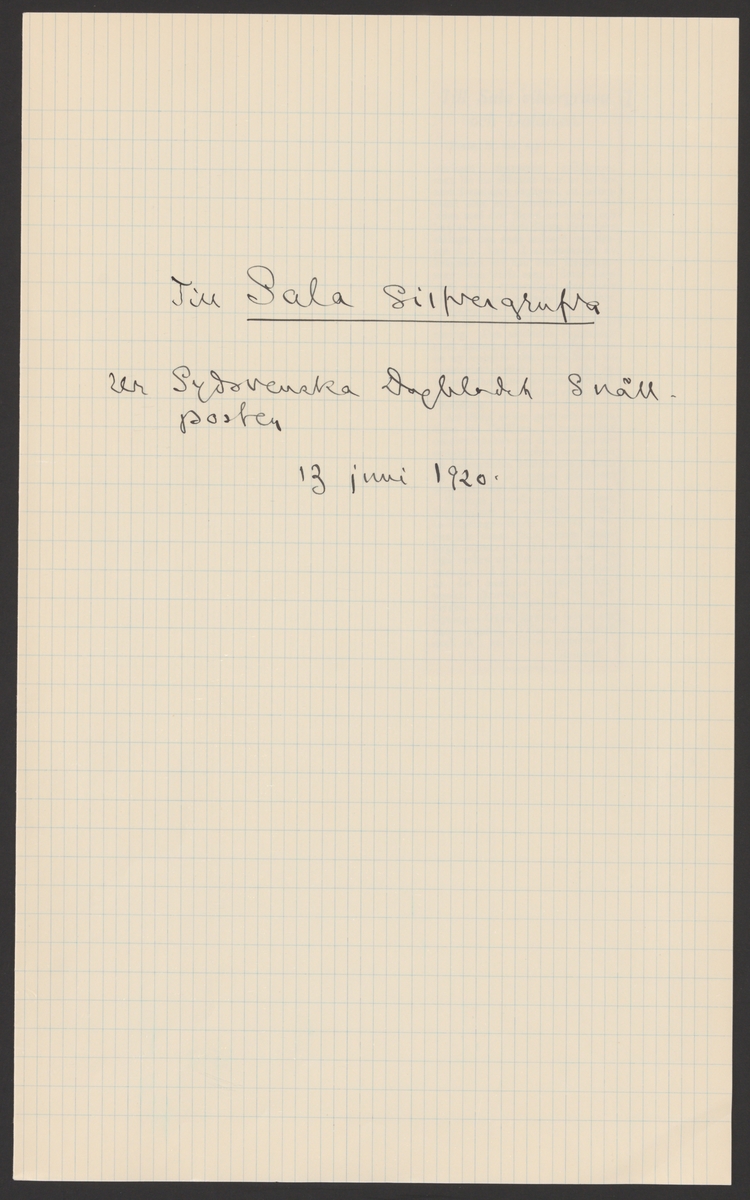 Till Sala Silfvergrufva
ur Sydsvenska Dagbladet Snäll-
posten
13 juni 1920.